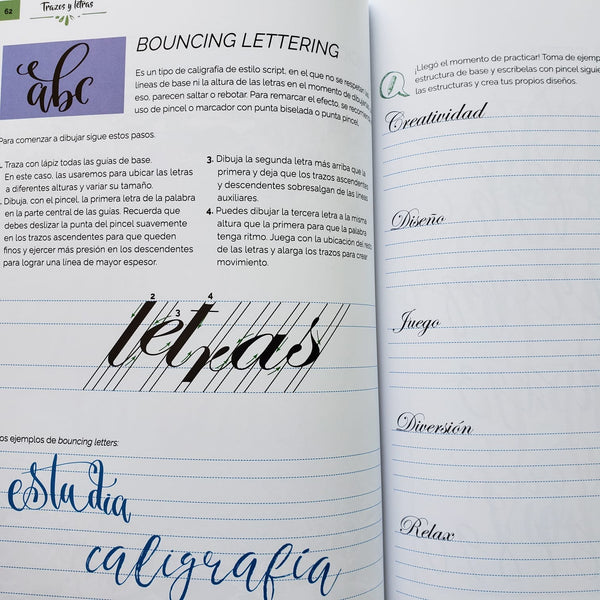 62
Trazos y letras
abc
BOUNCING LETTERING
Es un tipo de caligrafía de estilo script, en el que no se respetan las
líneas de base ni la altura de las letras en el momento de dibujar, por
eso, parecen saltar o rebotar. Para remarcar el efecto, se recomienda
uso de pincel o marcador con punta biselada o punta pincel.
Para comenzar a dibujar sigue estos pasos.
Traza con lápiz todas las guías de base.
En este caso, las usaremos para ubicar las letras
a diferentes alturas y variar su tamaño.
Dibuja, con el pincel, la primera letra de la palabra
en la parte central de las guías. Recuerda que
debes deslizar la punta del pincel suavemente
en los trazos ascendentes para que queden
finos y ejercer más presión en los descendentes
para lograr una línea de mayor espesor.
3. Dibuja la segunda letra más arriba que la
primera y deja que los trazos ascendentes
y descendentes sobresalgan de las líneas
auxiliares.
4. Puedes dibujar la tercera letra a la misma
altura que la primera para que la palabra
tenga ritmo. Juega con la ubicación del resto
de las letras y alarga los trazos para crear
movimiento.
2 3 4
letras
ejemplos de bouncing letters:
estudia
caligrafía
¡Llegó el momento de practicar! Toma de ejemplo
estructura de base y escríbelas con pincel
las estructuras y crea tus propios diseños.
Creatividad
Diseño
Juego
Diversión
Relax